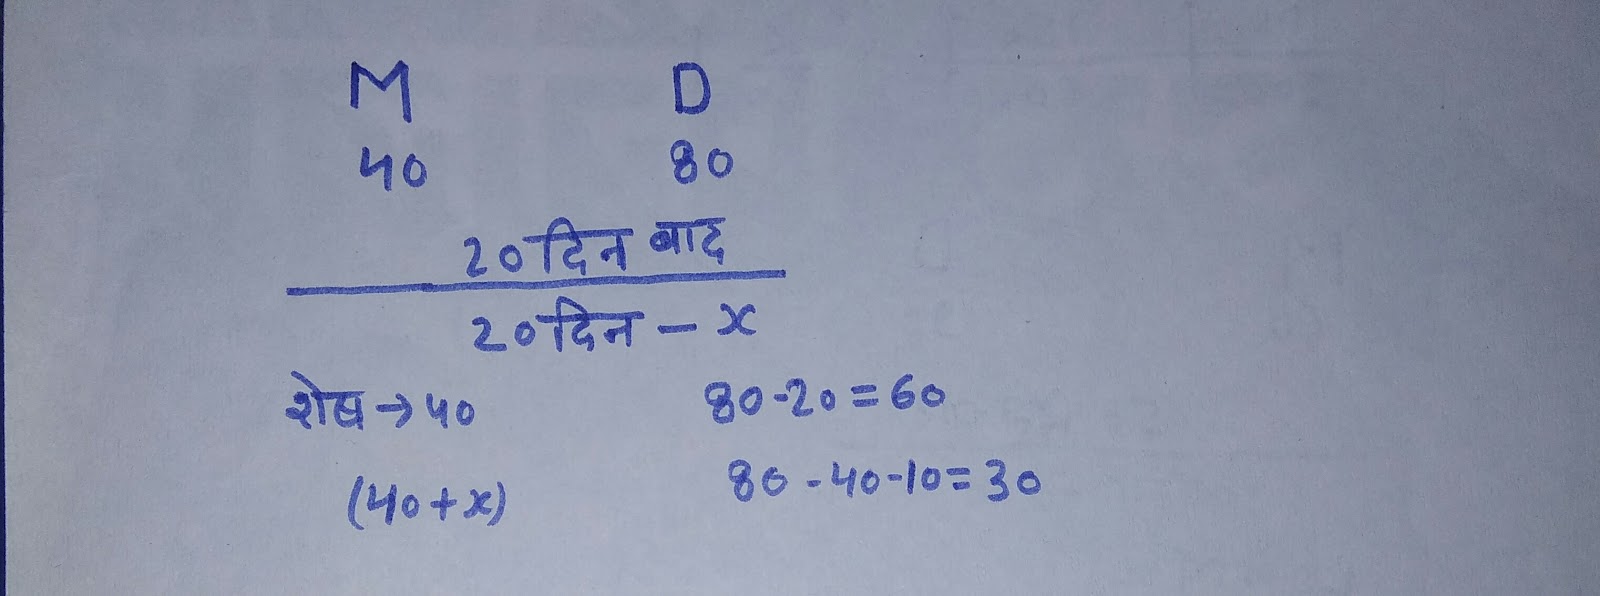 M D
40 80
20 दिन बाद
20 दिन - x
शेष → 40 80-20=60
(40+x) 80-40-10=30